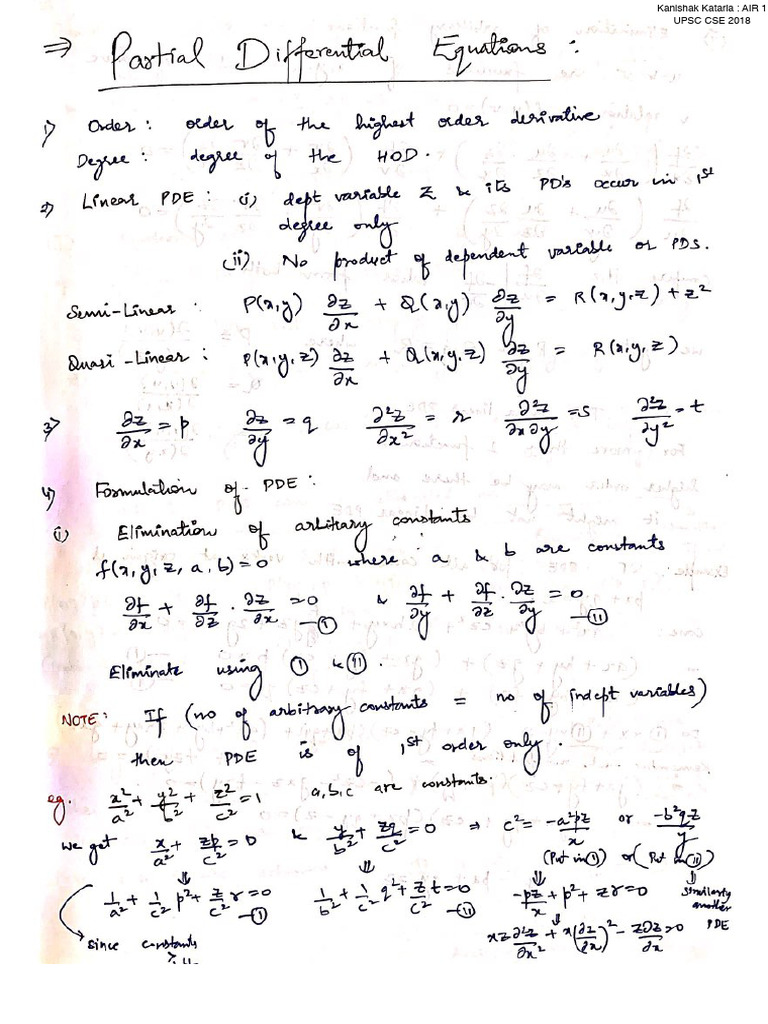 Kanishak Kataria : AIR 1
UPSC CSE 2018
⇒ Partial Differential Equations :
1) Order : order of the highest order derivative
Degree : degree of the HOD.
2) Linear PDE : (i) dept variable z & its PD's occur in 1st
degree only
(ii) No product of dependent variable or PDs.
Semi-Linear : P(x,y) ∂z/∂x + Q(x,y) ∂z/∂y = R(x,y,z) + z²
Quasi-Linear : P(x,y,z) ∂z/∂x + Q(x,y,z) ∂z/∂y = R(x,y,z)
3) ∂z/∂x = p ∂z/∂y = q ∂²z/∂x² = r ∂²z/∂x∂y = s ∂²z/∂y² = t
4) Formulation of PDE :
(i) Elimination of arbitary constants
f(x, y, z, a, b) = 0 where a & b are constants
∂f/∂x + ∂f/∂z . ∂z/∂x = 0 —(I) & ∂f/∂y + ∂f/∂z . ∂z/∂y = 0 —(II)
Eliminate using (I) & (II).
NOTE: If (no of arbitrary constants = no of indept variables)
then PDE is of 1st order only.
eg. x²/a² + y²/b² + z²/c² = 1 a, b, c are constants.
we get x/a² + zp/c² = 0 & y/b² + zq/c² = 0 ⇒ c² = -a²pz/x or -b²qz/y
(Put in (I)) or (Put in (II))
1/a² + 1/c² p² + z/c² r = 0 —(I) 1/b² + 1/c² q² + z/c² t = 0 —(II) -pz/x + p² + zr = 0 similarly
another
PDE
since constants xz ∂²z/∂x² + x(∂z/∂x)² - z∂z/∂x = 0